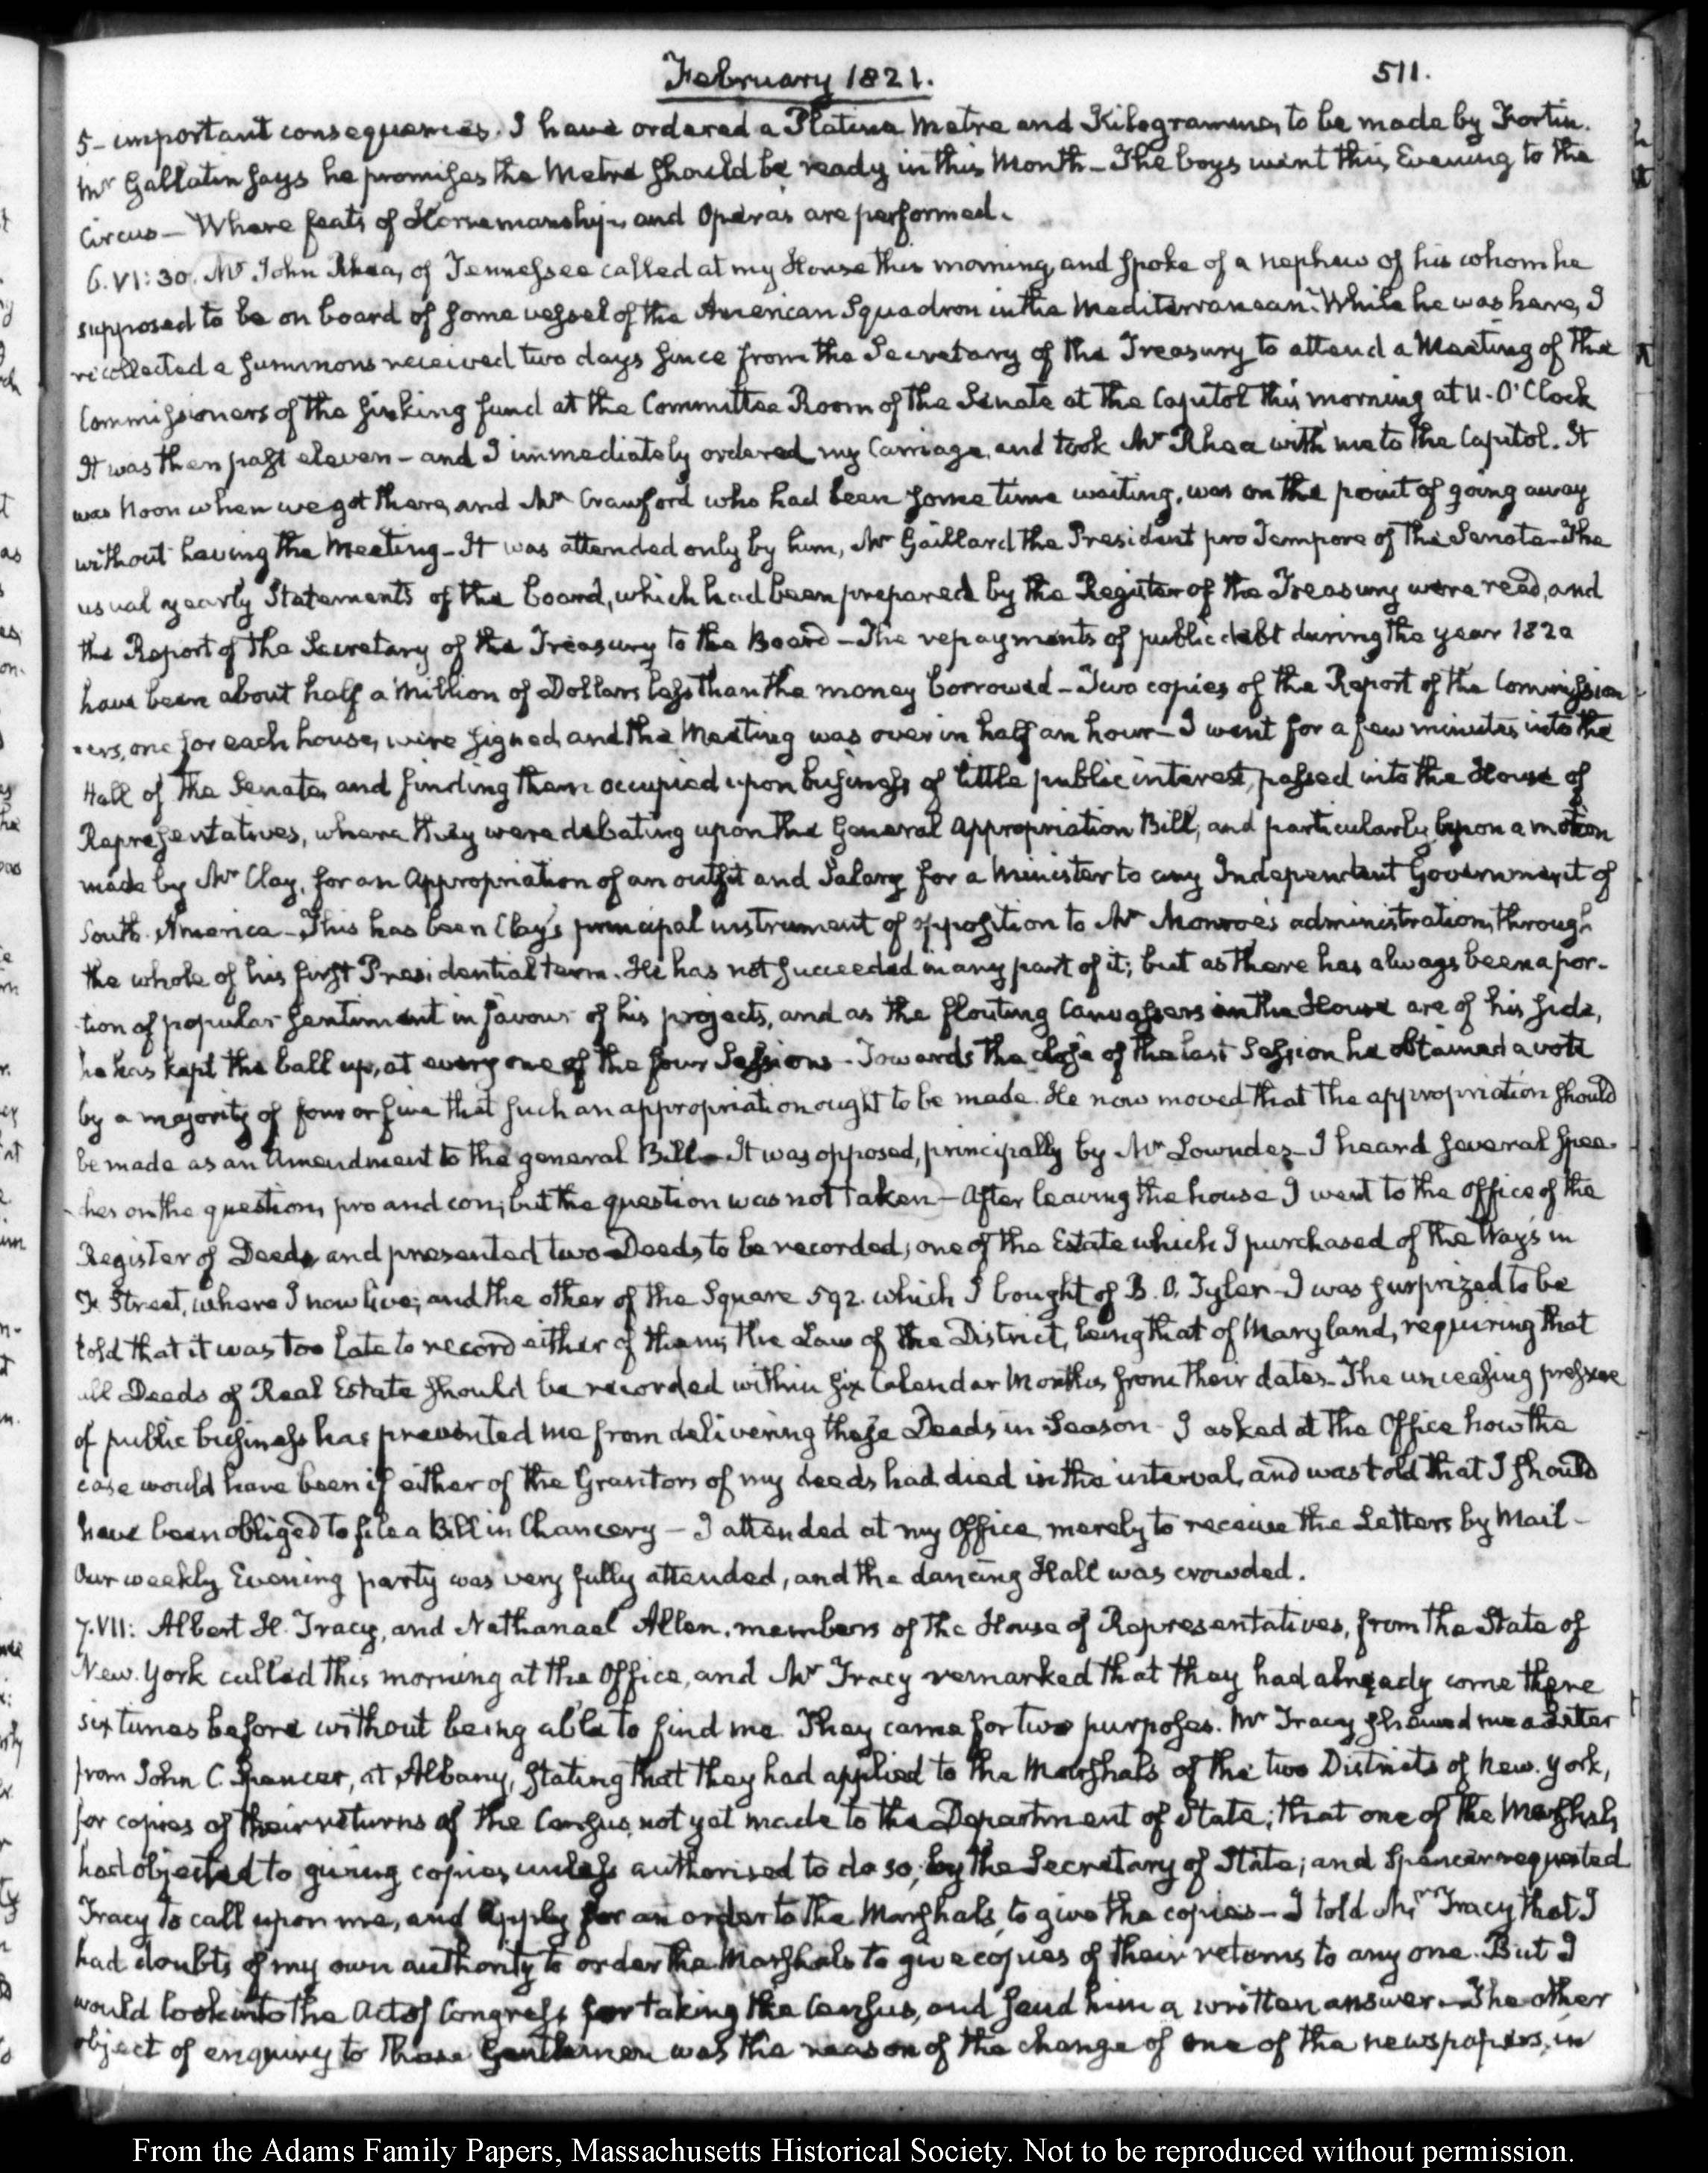 February 1821.
511.
5- important consequences. I have ordered a Platina Metre and Kilogramme, to be made by Fortin.
Mr Gallatin says he promises the Metre should be ready in this Month – The boys went this Evening to the
Circus – Where feats of Horsemanship, and Operas are performed.
6. VI:30. Mr John Rhea, of Tennessee called at my House this morning, and spoke of a nephew of his whom he
supposed to be on board of some vessel of the American Squadron in the Mediterranean. While he was here, I
recollected a summons received two days since from the Secretary of the Treasury to attend a Meeting of the
Commissioners of the sinking fund at the Committee Room of the Senate at the Capitol this morning at 11. O'Clock
It was then past eleven – and I immediately ordered my Carriage, and took Mr Rhea with me to the Capitol. It
was Noon when we got there, and Mr Crawford who had been some time waiting, was on the point of going away
without having the Meeting – It was attended only by him, Mr Gaillard the President pro Tempore of the Senate – The
usual yearly Statements of the board, which had been prepared by the Register of the Treasury were read, and
the Report of the Secretary of the Treasury to the Board – The repayments of public debt during the year 1820
have been about half a Million of Dollars less than the money borrowed – Two copies of the Report of the Commission
ers, one for each house, were signed, and the Meeting was over in half an hour – I went for a few minutes into the
Hall of the Senate, and finding them occupied upon business of little public interest, passed into the House of
Representatives, where they were debating upon the General Appropriation Bill, and particularly upon a motion
made by Mr Clay, for an Appropriation of an outfit and Salary for a Minister to any Independent Government of
South America – This has been Clay's principal instrument of opposition to Mr Monroe's administration, through
the whole of his first Presidential term. He has not succeeded in any part of it; but as there has always been a por-
tion of popular sentiment in favour of his projects, and as the flouting Canvassers in the House are of his side,
he has kept the ball up, at every one of the four Sessions – Towards the close of the last Session he obtained a vote
by a majority of four or five that such an appropriation ought to be made. He now moved that the appropriation should
be made as an Amendment to the general Bill – It was opposed, principally by Mr Lowndes – I heard several spee-
ches on the question, pro and con; but the question was not taken – After leaving the house I went to the Office of the
Register of Deeds, and presented two Deeds to be recorded; one of the Estate which I purchased of the Ways in
F. Street, where I now live; and the other of the Square 592. which I bought of B. O. Tyler – I was surprized to be
told that it was too late to record either of them; the Law of the District, being that of Maryland, requiring that
all Deeds of Real Estate should be recorded within six Calendar Months from their dates – The unceasing pressure
of public business has prevented me from delivering these Deeds in Season – I asked at the Office how the
case would have been if either of the Grantors of my deeds had died in the interval, and was told that I should
have been obliged to file a Bill in Chancery – I attended at my Office, merely to receive the Letters by Mail –
Our weekly Evening party was very fully attended, and the dancing Hall was crowded.
7. VII: Albert H. Tracy, and Nathanael Allen, members of the House of Representatives, from the State of
New York called this morning at the Office, and Mr Tracy remarked that they had already come there
six times before without being able to find me. They came for two purposes. Mr Tracy shewed me a Letter
from John C. Spencer, at Albany, stating that they had applied to the Marshals of the two Districts of New York,
for copies of their returns of the Census, not yet made to the Department of State; that one of the Marshals
had objected to giving copies unless authorised to do so, by the Secretary of State; and Spencer requested
Tracy to call upon me, and apply for an order to the Marshals, to give the copies – I told Mr Tracy that I
had doubts of my own authority to order the Marshals to give copies of their returns to any one. But I
would look into the Act of Congress for taking the Census, and send him a written answer – The other
object of enquiry to these Gentlemen was the reason of the change of one of the newspapers, in
From the Adams Family Papers, Massachusetts Historical Society. Not to be reproduced without permission.